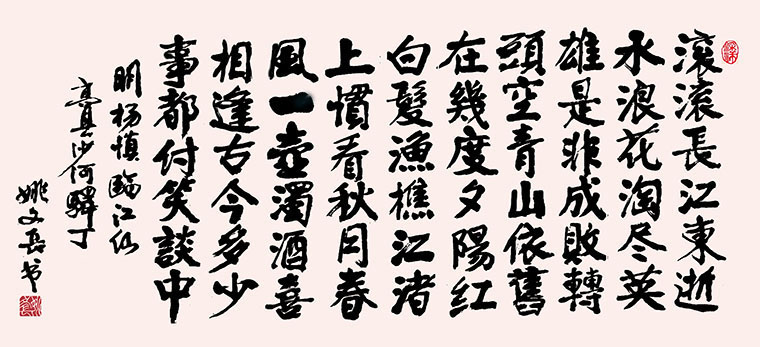 滚滚長江東逝
水浪花淘尽英
雄是非成敗轉
頭空青山依舊
在幾度夕陽紅
白髮漁樵江渚
上慣看秋月春
風一壺濁酒喜
相逢古今多少
事都付笑談中
明杨慎臨江仙
沙河驛
姚文书